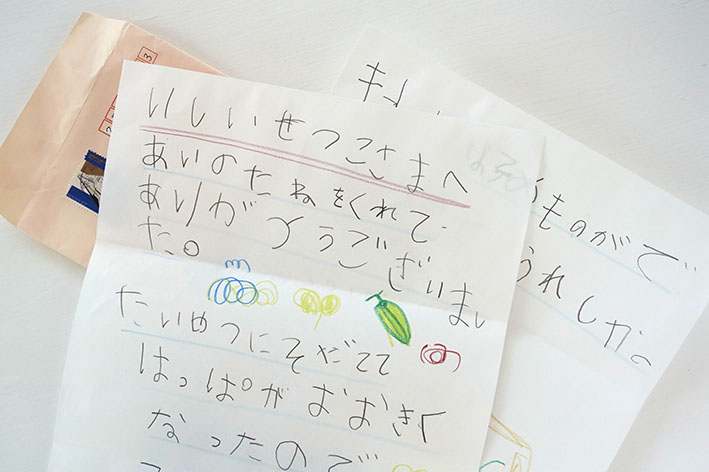 いしいせつこさまへ
あいのたねをくれて
ありがとうござい まし
た。
たいせつにそだてて
はっぱがおおきく
なったので
ものがで
うれしか
3